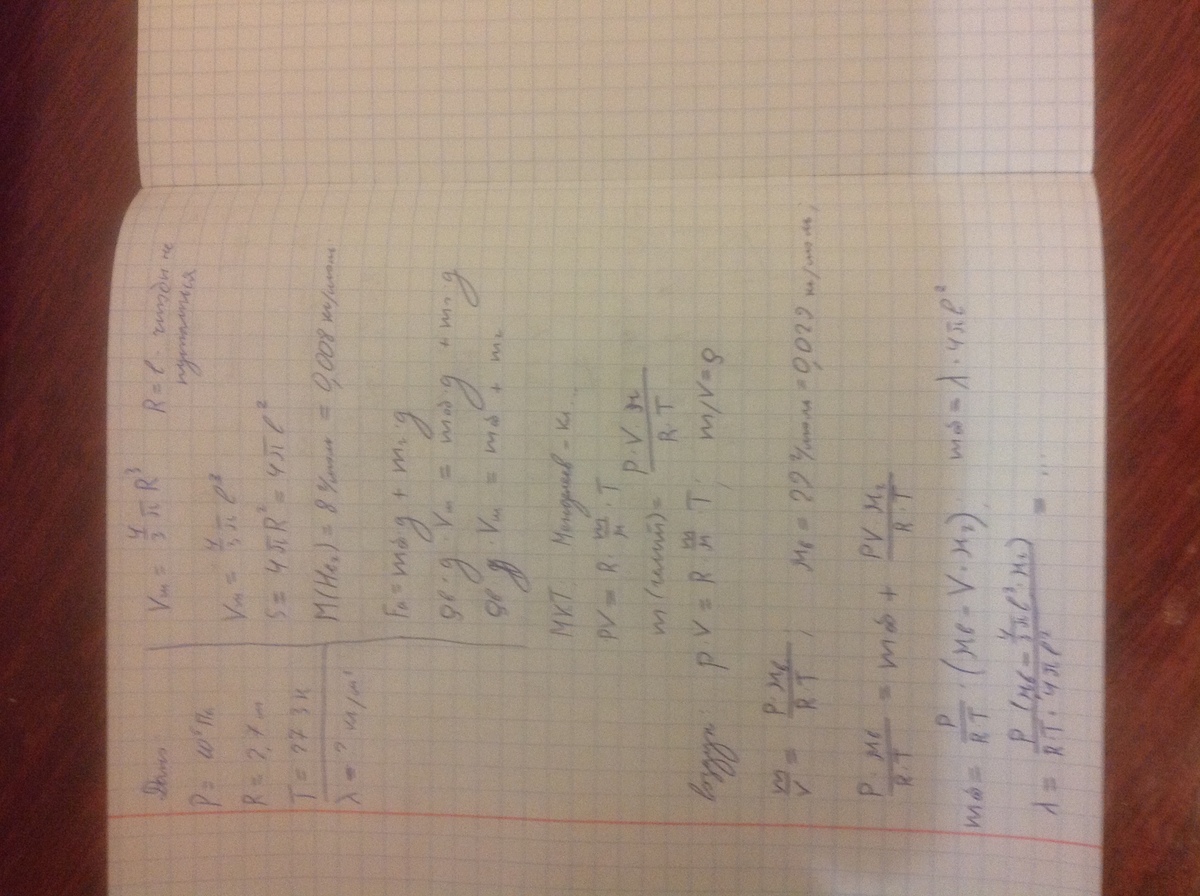 Дано:
P = 10⁵ Па
R = 2,7 м
T = 273 К
λ = ? кг/м²
Vш = 4/3 π R³ R = l чтобы не путаться
Vш = 4/3 π l³
S = 4πR² = 4πl²
M(He₂) = 8 г/моль = 0,008 кг/моль
Fа = mоб g + mг · g
ρв · g · Vш = mоб g + mг · g
ρв · Vш = mоб + mг
МКТ: Менделеев - Кл...
PV = R · m/м · T
m(гелий) = P · V · м / R · T
воздух: P · V = R · m/м · T; m/V = ρ
m/V = P · мв / R · T; мв = 29 г/моль = 0,029 кг/моль;
P · мв / R · T = mоб + PV мг / R · T
mоб = P / R · T · (мв - V · мг) mоб = λ · 4πl²
λ = P (мв - 4/3 π l³ · мг) / R · T · 4πl² = ...